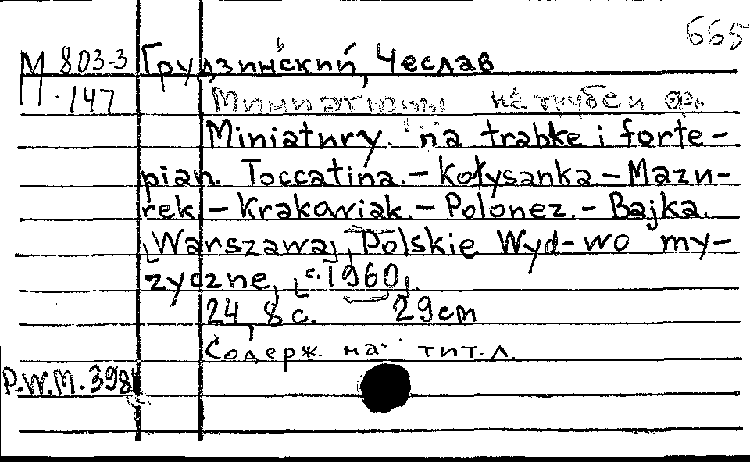 665
М 803-3 Грудзиньский, Чеслав
П. 147 Миниатюры на трубе и фп.
Miniatury. na trąbkę i forte-
pian. Toccatina. – Kołysanka – Mazu-
rek – Krakowiak. – Polonez. – Bajka.
[Warszawa], Polskie Wyd-wo my-
zyczne, [c. 1960].
24, 8 с. 29 cm
Содерж. на тит. л.
P.W.M. 398